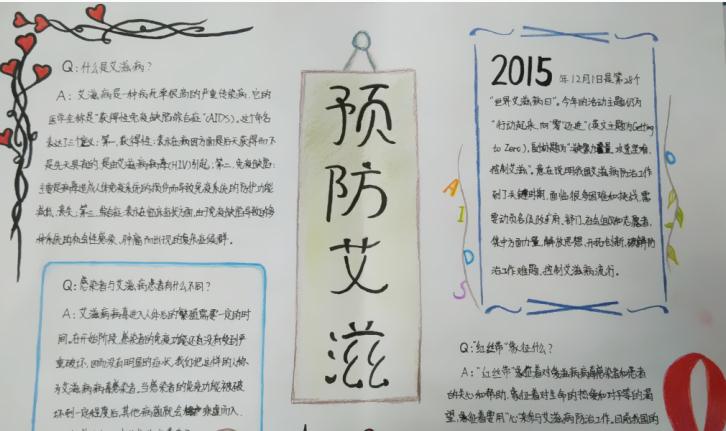 Q:什么是艾滋病?
A:艾滋病是一种病死率很高的严重传染病,它的
医学全称是"获得性免疫缺陷综合症"(AIDS)。这个命名
表达了三个定义:第一,获得性:表示在病因方面是后天获得而不
是先天具有的,是由艾滋病病毒(HIV)引起;第二,免疫缺陷:
主要是病毒进入人体免疫系统的
Q:感染者与艾滋病患者有什么不同?
A:艾滋病病毒进入人体后的繁殖需要一定的时
间。在开始阶段,感染者的免疫功能还没有受到严
重破坏,因而没有明显的症状,我们把这样的人称
为艾滋病病毒感染者。当感染者的免疫功能被破
坏到一定程度后,其他病菌就会乘虚而入,
预
防
艾
滋
2015年12月1日是第28个
"世界艾滋病日"。今年的活动主题仍为
"行动起来,向'零'迈进"(英文主题为Getting
to Zero),副标题为"凝聚力量,攻坚克难,
控制艾滋"。意在说明我国艾滋病防治工作
到了关键时期,面临很多困难和挑战,需
要动员各级政府、部门、社会组织和志愿者,
集中方面力量,解放思想,开拓创新,破解防
治工作难题,控制艾滋病流行。
AIDS
Q:"红丝带"象征什么?
A:"红丝带"象征着对艾滋病病毒感染者和患者
的关心和帮助,象征着对生命的热爱和对平等的渴
望,象征着要用"心"来参与艾滋病防治工作。目前我国的